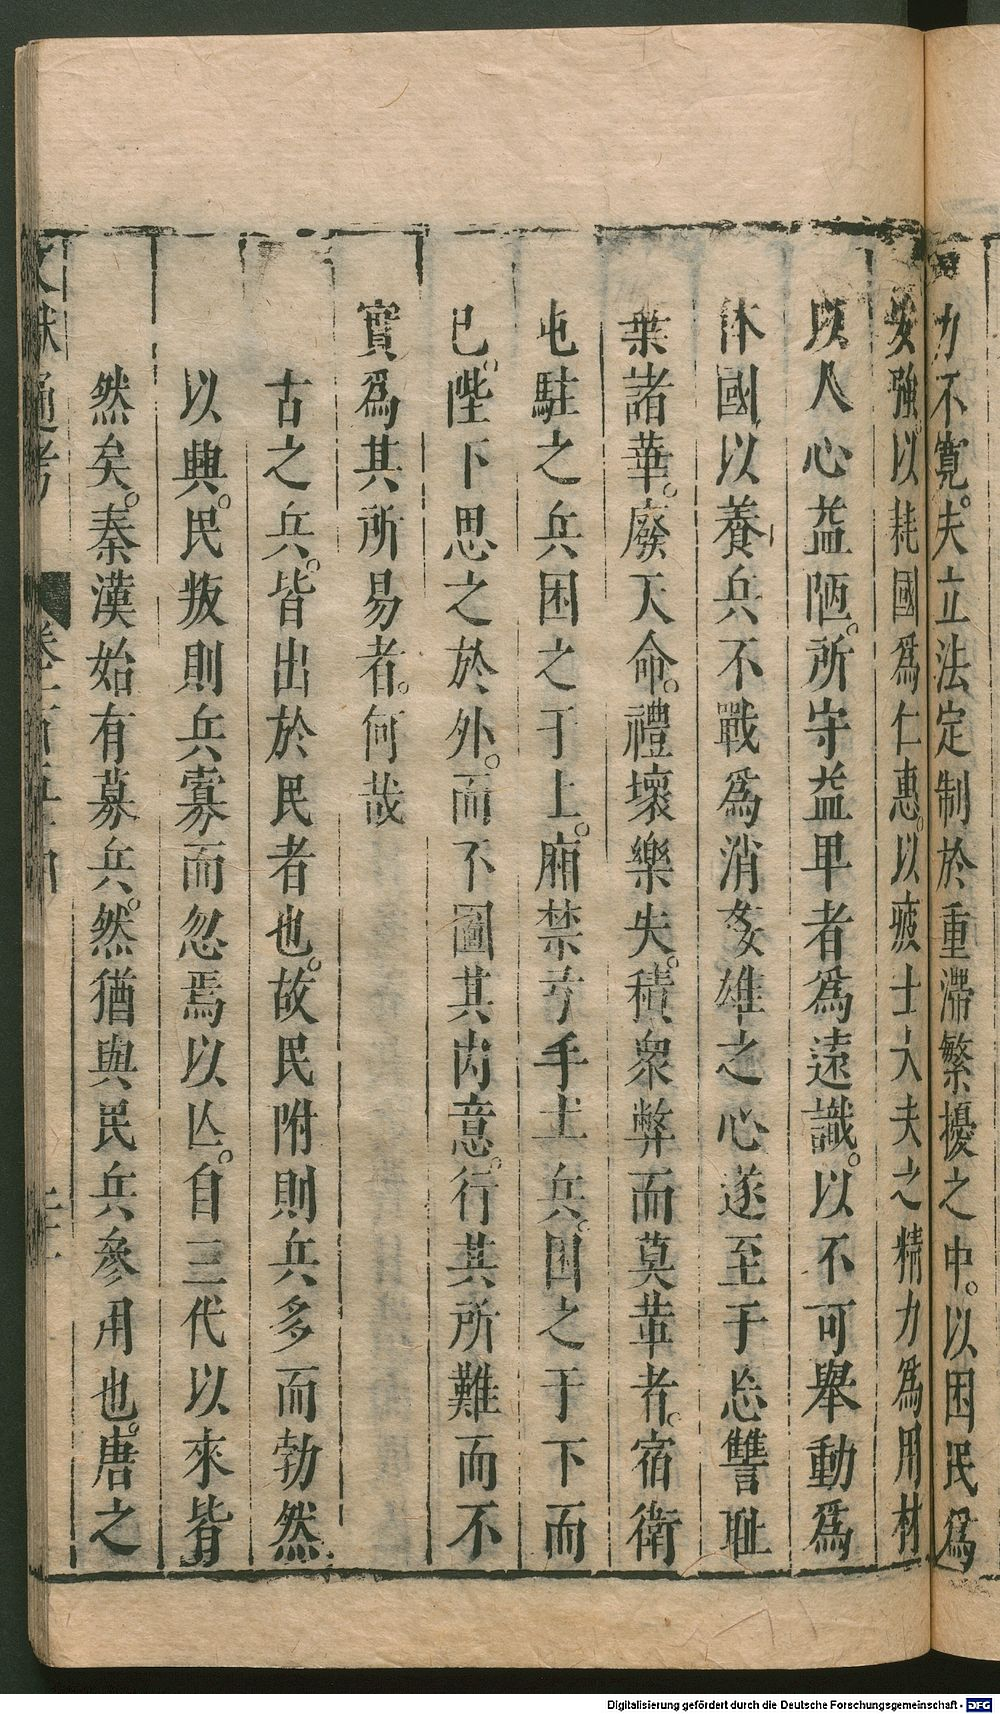 力不寬。夫立法定制於重滯繁擾之中。以困民爲
安強。以耗國爲仁惠。以疲士大夫之精力爲用材
以人心益陋。所守益卑者爲遠識。以不可舉動爲
体國以養兵不戰爲消姦雄之心遂至于忘讐耻
棄諸華。廢天命。禮壞樂失。積衆弊而莫葺者。宿衛
屯駐之兵困之于上。廂禁弓手土兵。困之于下而
已。陛下思之於外。而不圖其内意。行其所難而不
實爲其所易者。何哉
古之兵。皆出於民者也。故民附則兵多而勃然
以興。民叛則兵寡而忽焉以亾。自三代以來皆
然矣。秦漢始有募兵。然猶與民兵參用也。唐之
文獻通考
卷一百五十四
二十一
Digitalisierung gefördert durch die Deutsche Forschungsgemeinschaft - DFG